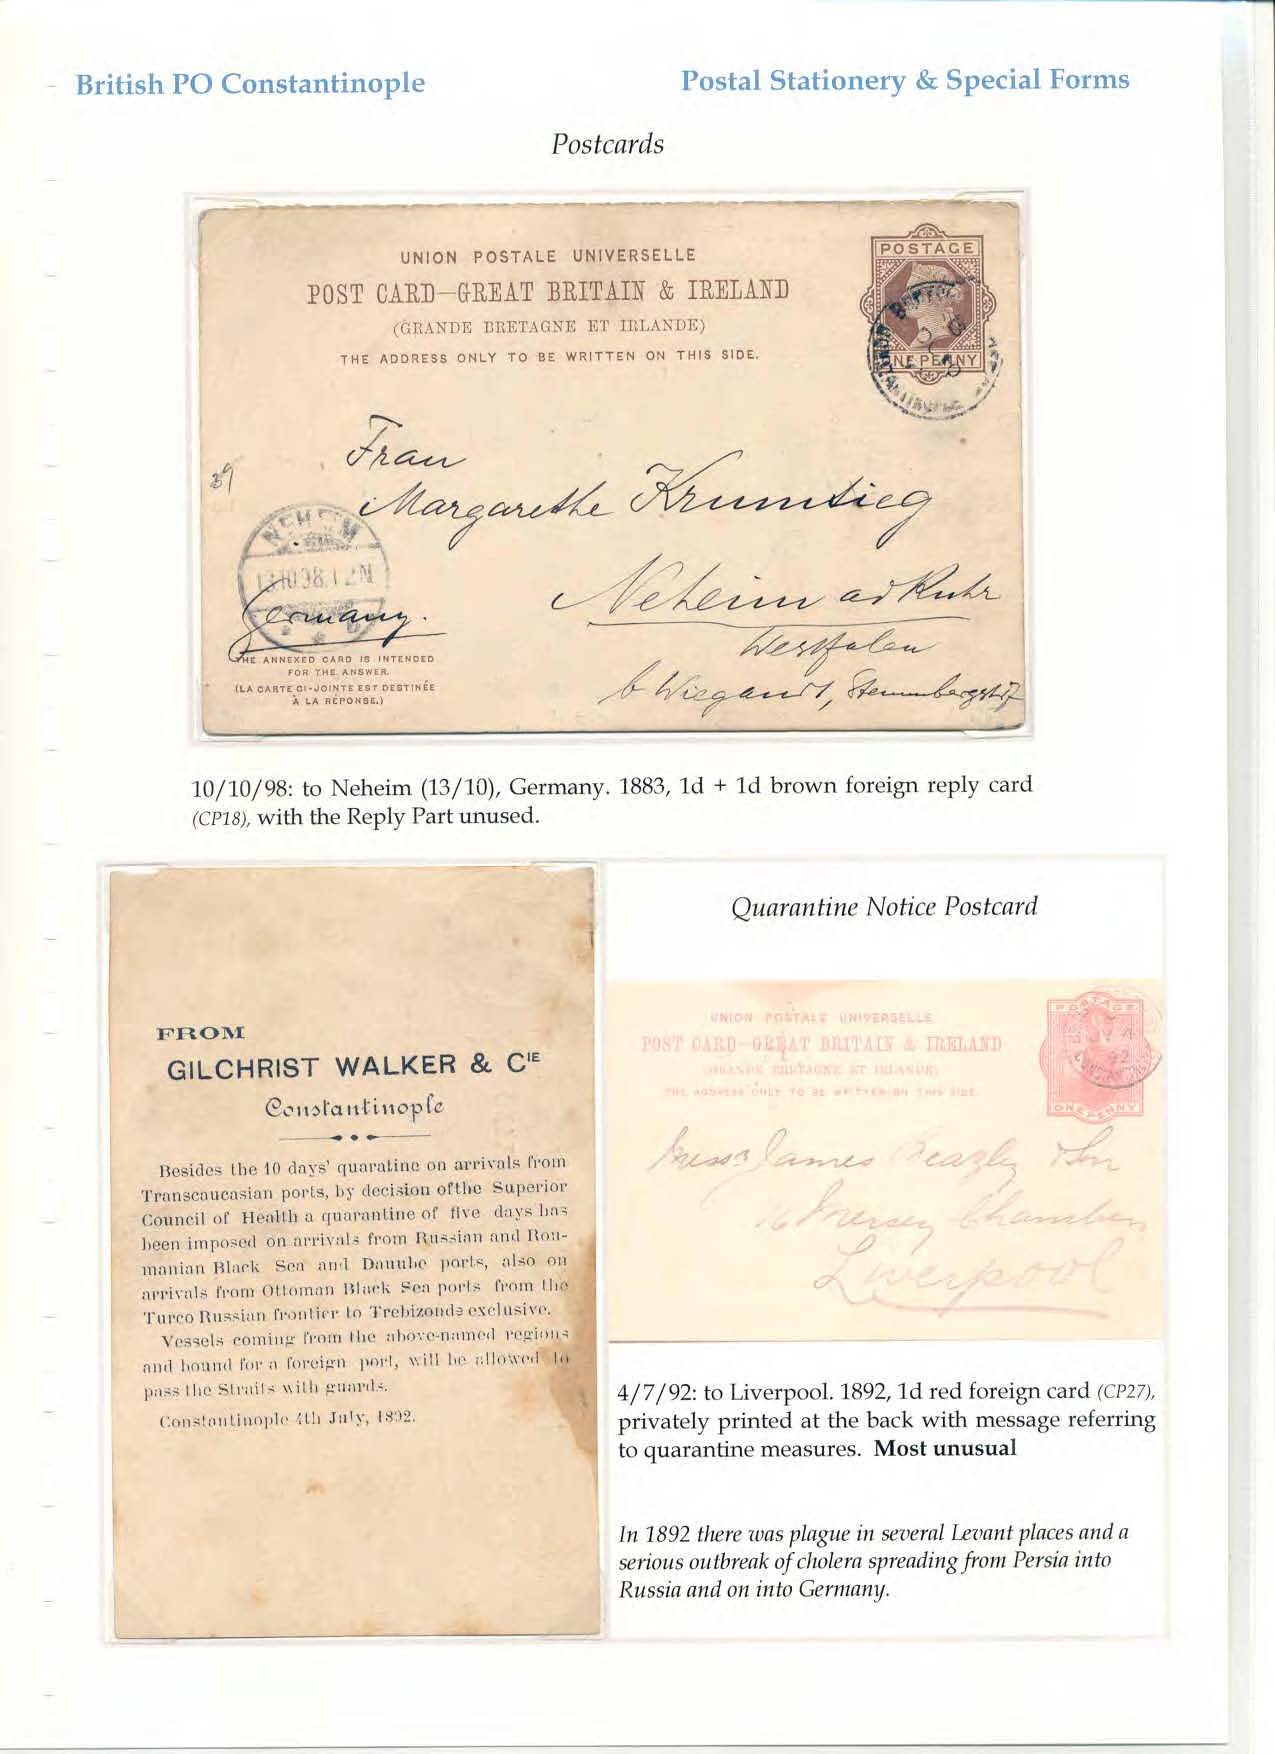 British PO Constantinople
Postal Stationery & Special Forms
Postcards
UNION POSTALE UNIVERSELLE
POST CARD—GREAT BRITAIN & IRELAND
(GRANDE BRETAGNE ET IRLANDE)
THE ADDRESS ONLY TO BE WRITTEN ON THIS SIDE.
POSTAGE
ONE PENNY
Frau
39
Margarethe Krumtieg
NEHEIM
13.10.98.12N
Neheim a d Ruhr
Germany.
Westfalen
b Wiegandt,
THE ANNEXED CARD IS INTENDED
FOR THE ANSWER.
(LA CARTE CI-JOINTE EST DESTINÉE
À LA RÉPONSE.)
10/10/98: to Neheim (13/10), Germany. 1883, 1d + 1d brown foreign reply card
(CP18), with the Reply Part unused.
FROM
GILCHRIST WALKER & CIE
Constantinople
Besides the 10 days' quaratine on arrivals from
Transcaucasian ports, by decision ofthe Superior
Council of Health a quarantine of five days has
been imposed on arrivals from Russian and Rou-
manian Black Sea and Danube ports, also on
arrivals from Ottoman Black Sea ports from the
Turco Russian frontier to Trebizonde exclusive.
Vessels coming from the above-named regions
and bound for a foreign port, will be allowed to
pass the Straits with guards.
Constantinople 4th July, 1892.
Quarantine Notice Postcard
UNION POSTALE UNIVERSELLE
POST CARD—GREAT BRITAIN & IRELAND
(GRANDE BRETAGNE ET IRLANDE)
THE ADDRESS ONLY TO BE WRITTEN ON THIS SIDE.
POSTAGE
ONE PENNY
Messrs James Beazley & Son
16 Mersey Chambers
Liverpool
4/7/92: to Liverpool. 1892, 1d red foreign card (CP27),
privately printed at the back with message referring
to quarantine measures. Most unusual
In 1892 there was plague in several Levant places and a
serious outbreak of cholera spreading from Persia into
Russia and on into Germany.